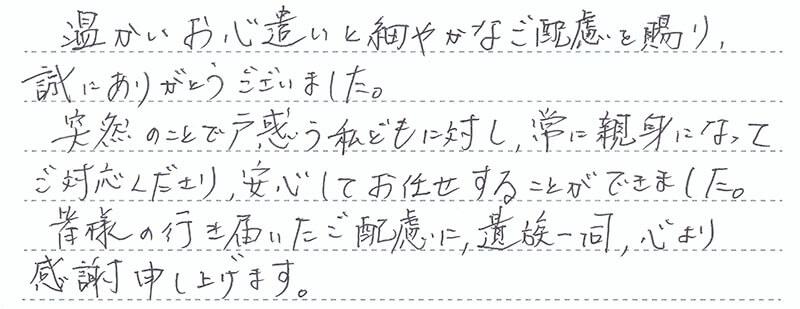 温かいお心遣いと細やかなご配慮を賜り,
誠にありがとうございました。
突然のことで戸惑う私どもに対し,常に親身になって
ご対応くださり,安心してお任せすることができました。
皆様の行き届いたご配慮に,遺族一同,心より
感謝申し上げます。